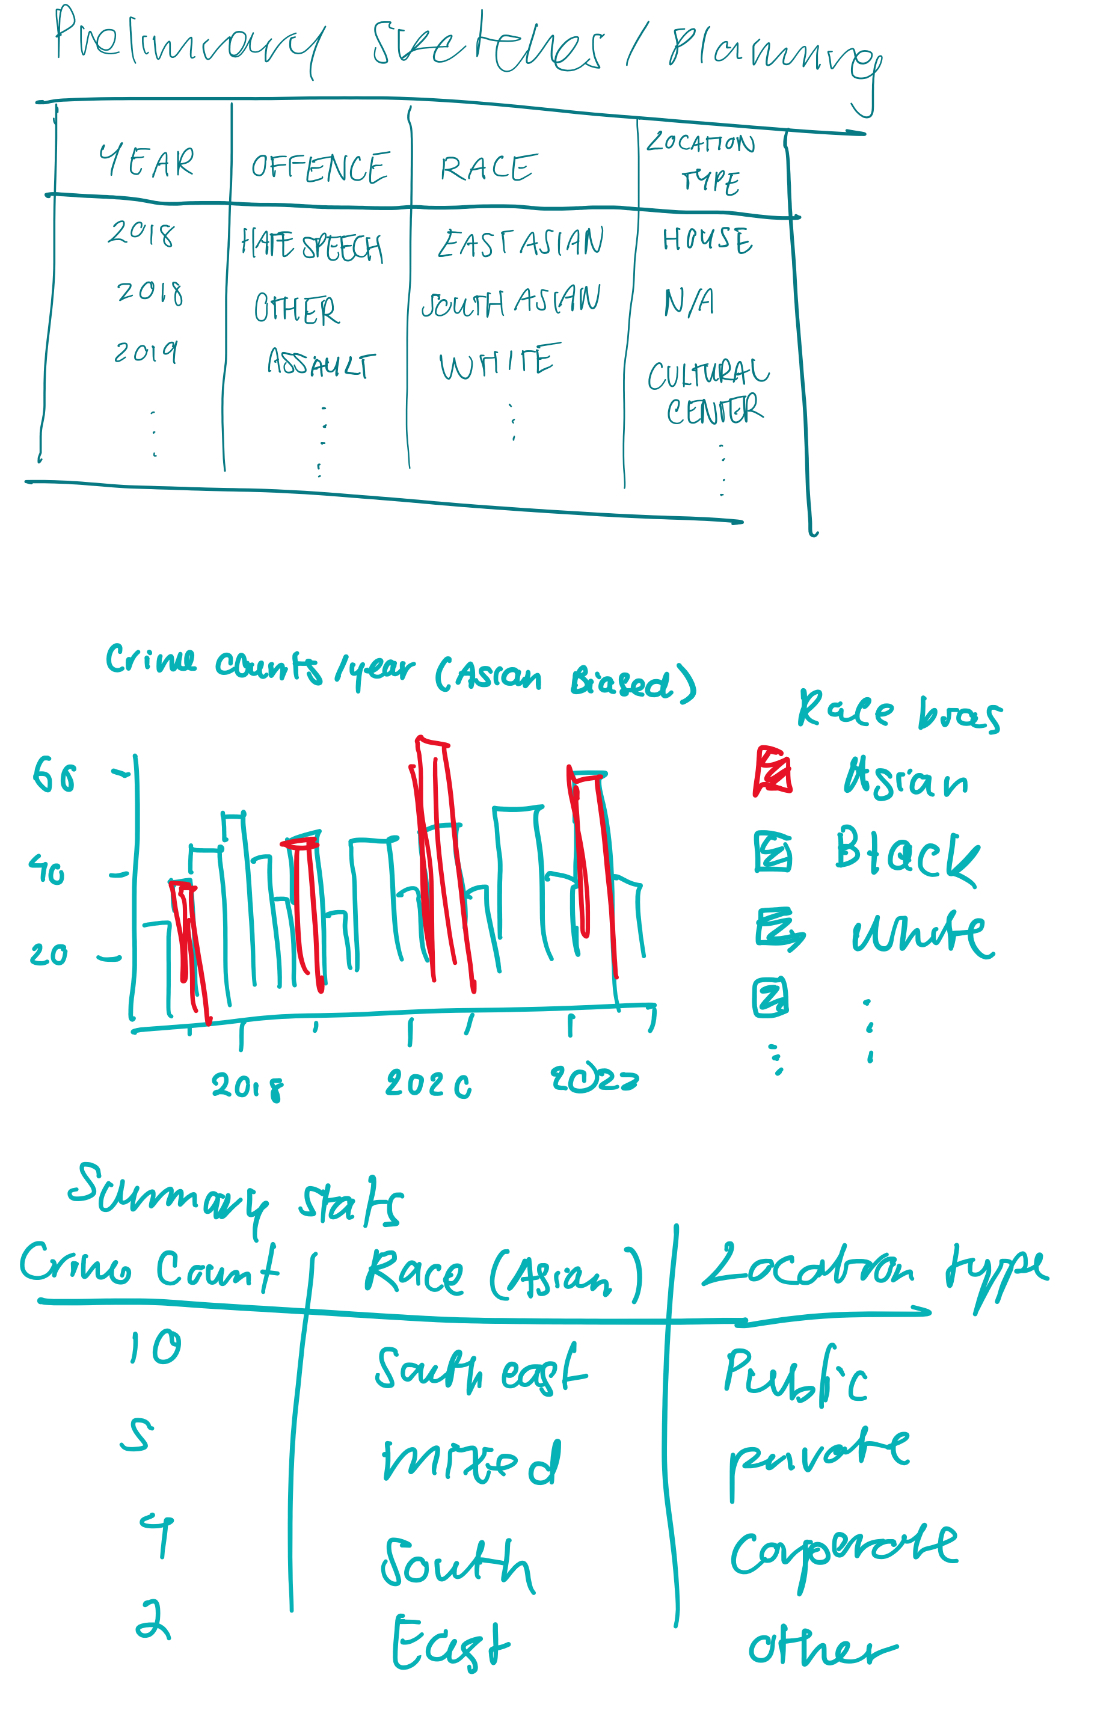 Preliminary Sketches / Planning
YEAR OFFENCE RACE LOCATION TYPE
2018 HATE SPEECH EAST ASIAN HOUSE
2018 OTHER SOUTH ASIAN N/A
2019 ASSAULT WHITE CULTURAL CENTER
Crime counts/year (Asian Biased)
60
40
20
2018 2020 2022
Race bias
Asian
Black
White
Summary stats
Crime Count Race (Asian) Location type
10 South east Public
5 mixed private
4 South Corporate
2 East other